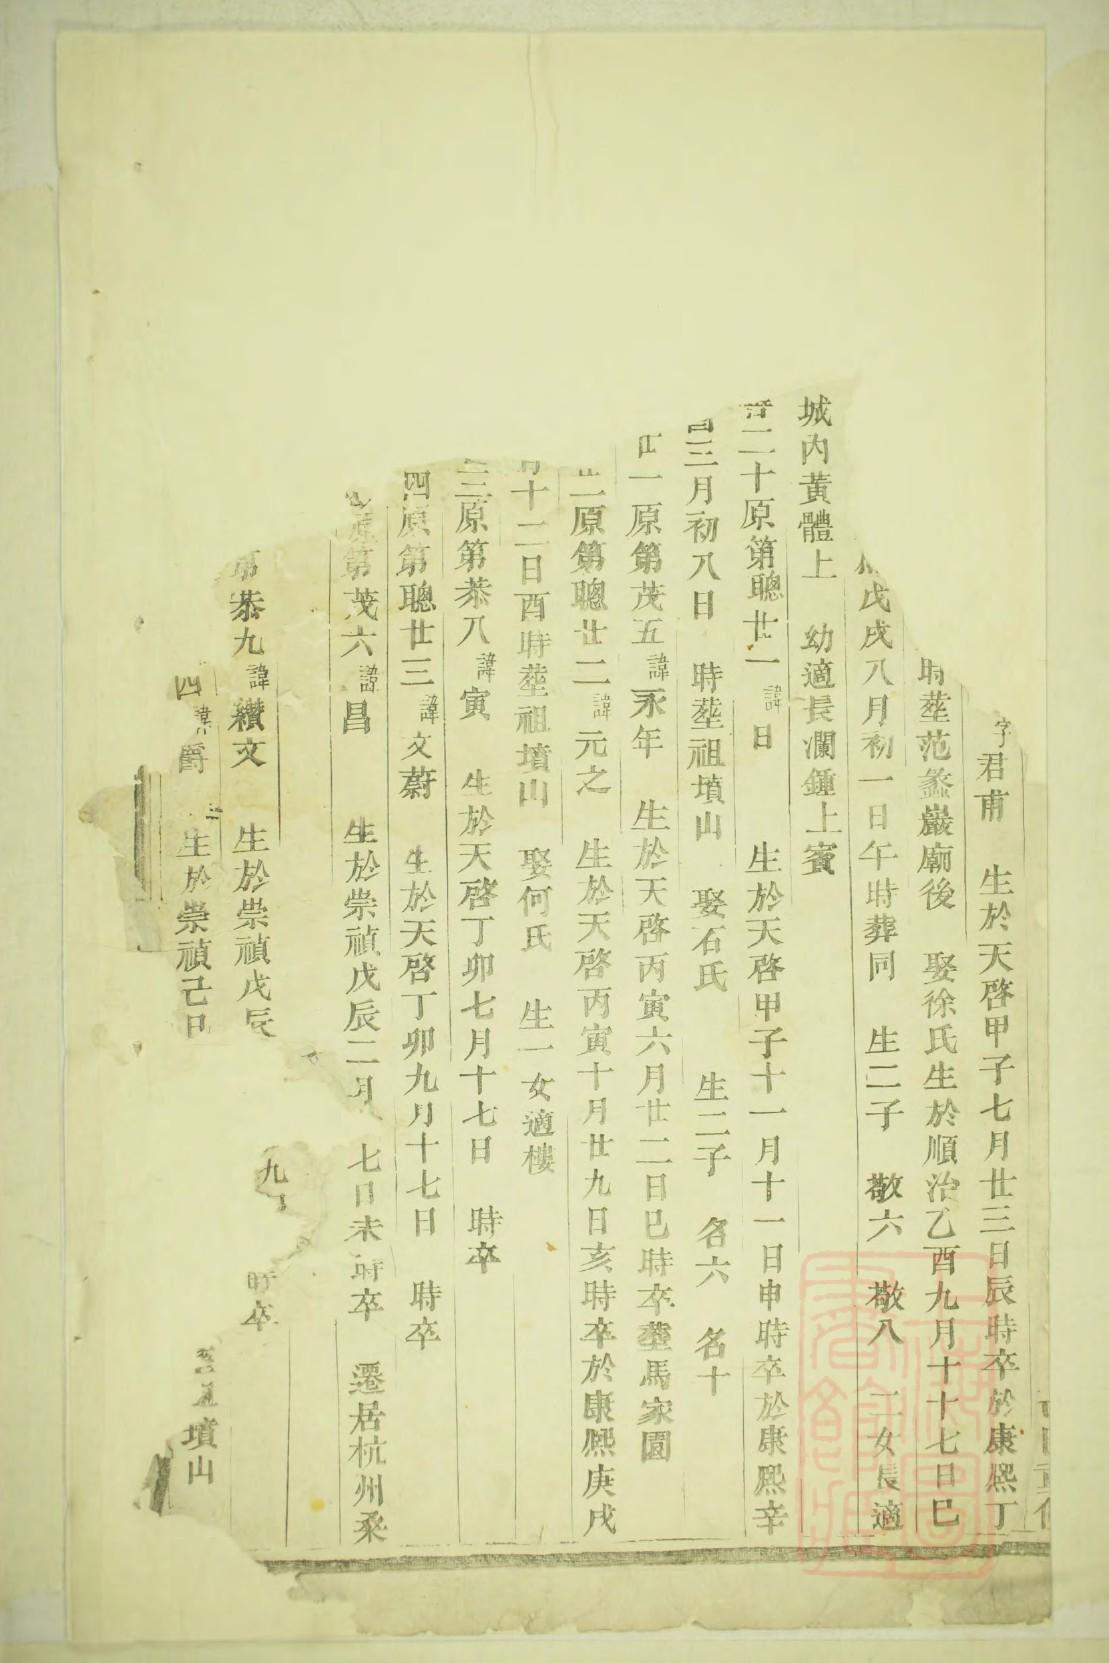 字君甫 生於天啓甲子七月廿三日辰時卒於康熙丁
時塟范蠡巖廟後 娶徐氏生於順治乙酉九月十七日巳
戊戌八月初一日午時葬同 生二子 敬六 敬八 二女長適
城內黃體上 幼適長瀾鍾上賓
二十原第聰廿一諱日 生於天啓甲子十一月十一日申時卒於康熙辛
三月初八日 時塟祖墳山 娶石氏 生二子 名六 名十
一原第茂五諱永年 生於天啓丙寅六月廿二日巳時卒塟馬家園
二原第聰廿二諱元之 生於天啓丙寅十月廿九日亥時卒於康熙庚戌
十二日酉時塟祖墳山 娶何氏 生一女適樓
三原第恭八諱寅 生於天啓丁卯七月十七日 時卒
四原第聰廿三諱文蔚 生於天啓丁卯九月十七日 時卒
原第茂六諱昌 生於崇禎戊辰二月 七日未時卒 遷居杭州桑
第恭九諱纘文 生於崇禎戊辰 九 時卒
四諱爵 生於崇禎己 墳山